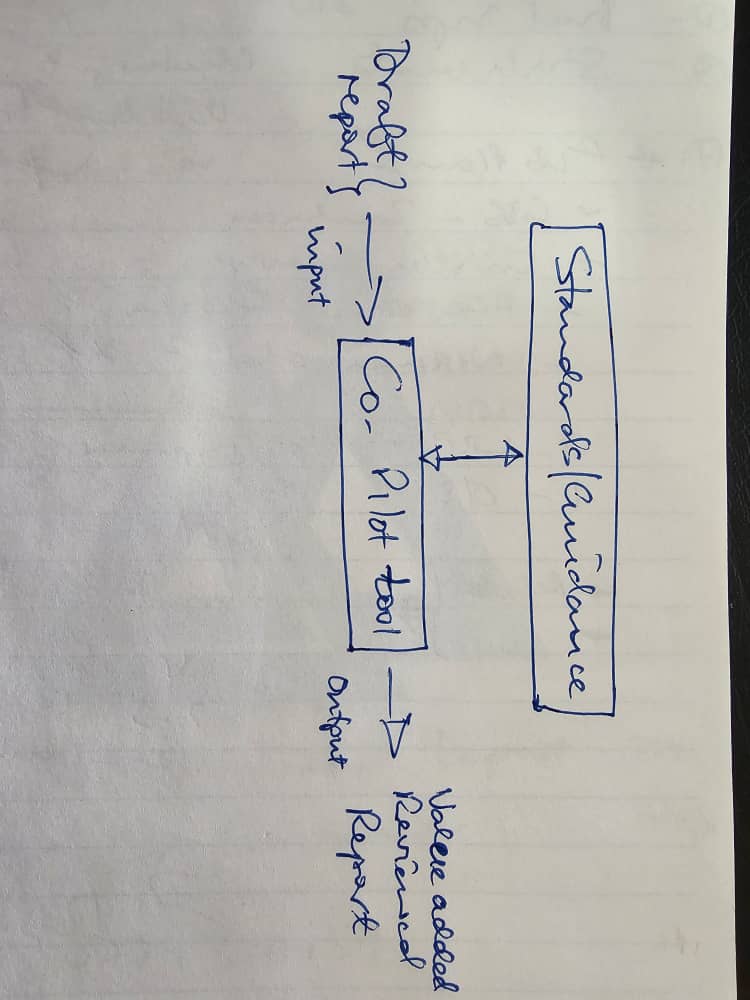 Standards/Guidance
Draft
report
input
Co-Pilot tool
Output
Value added
Reviewed
Report